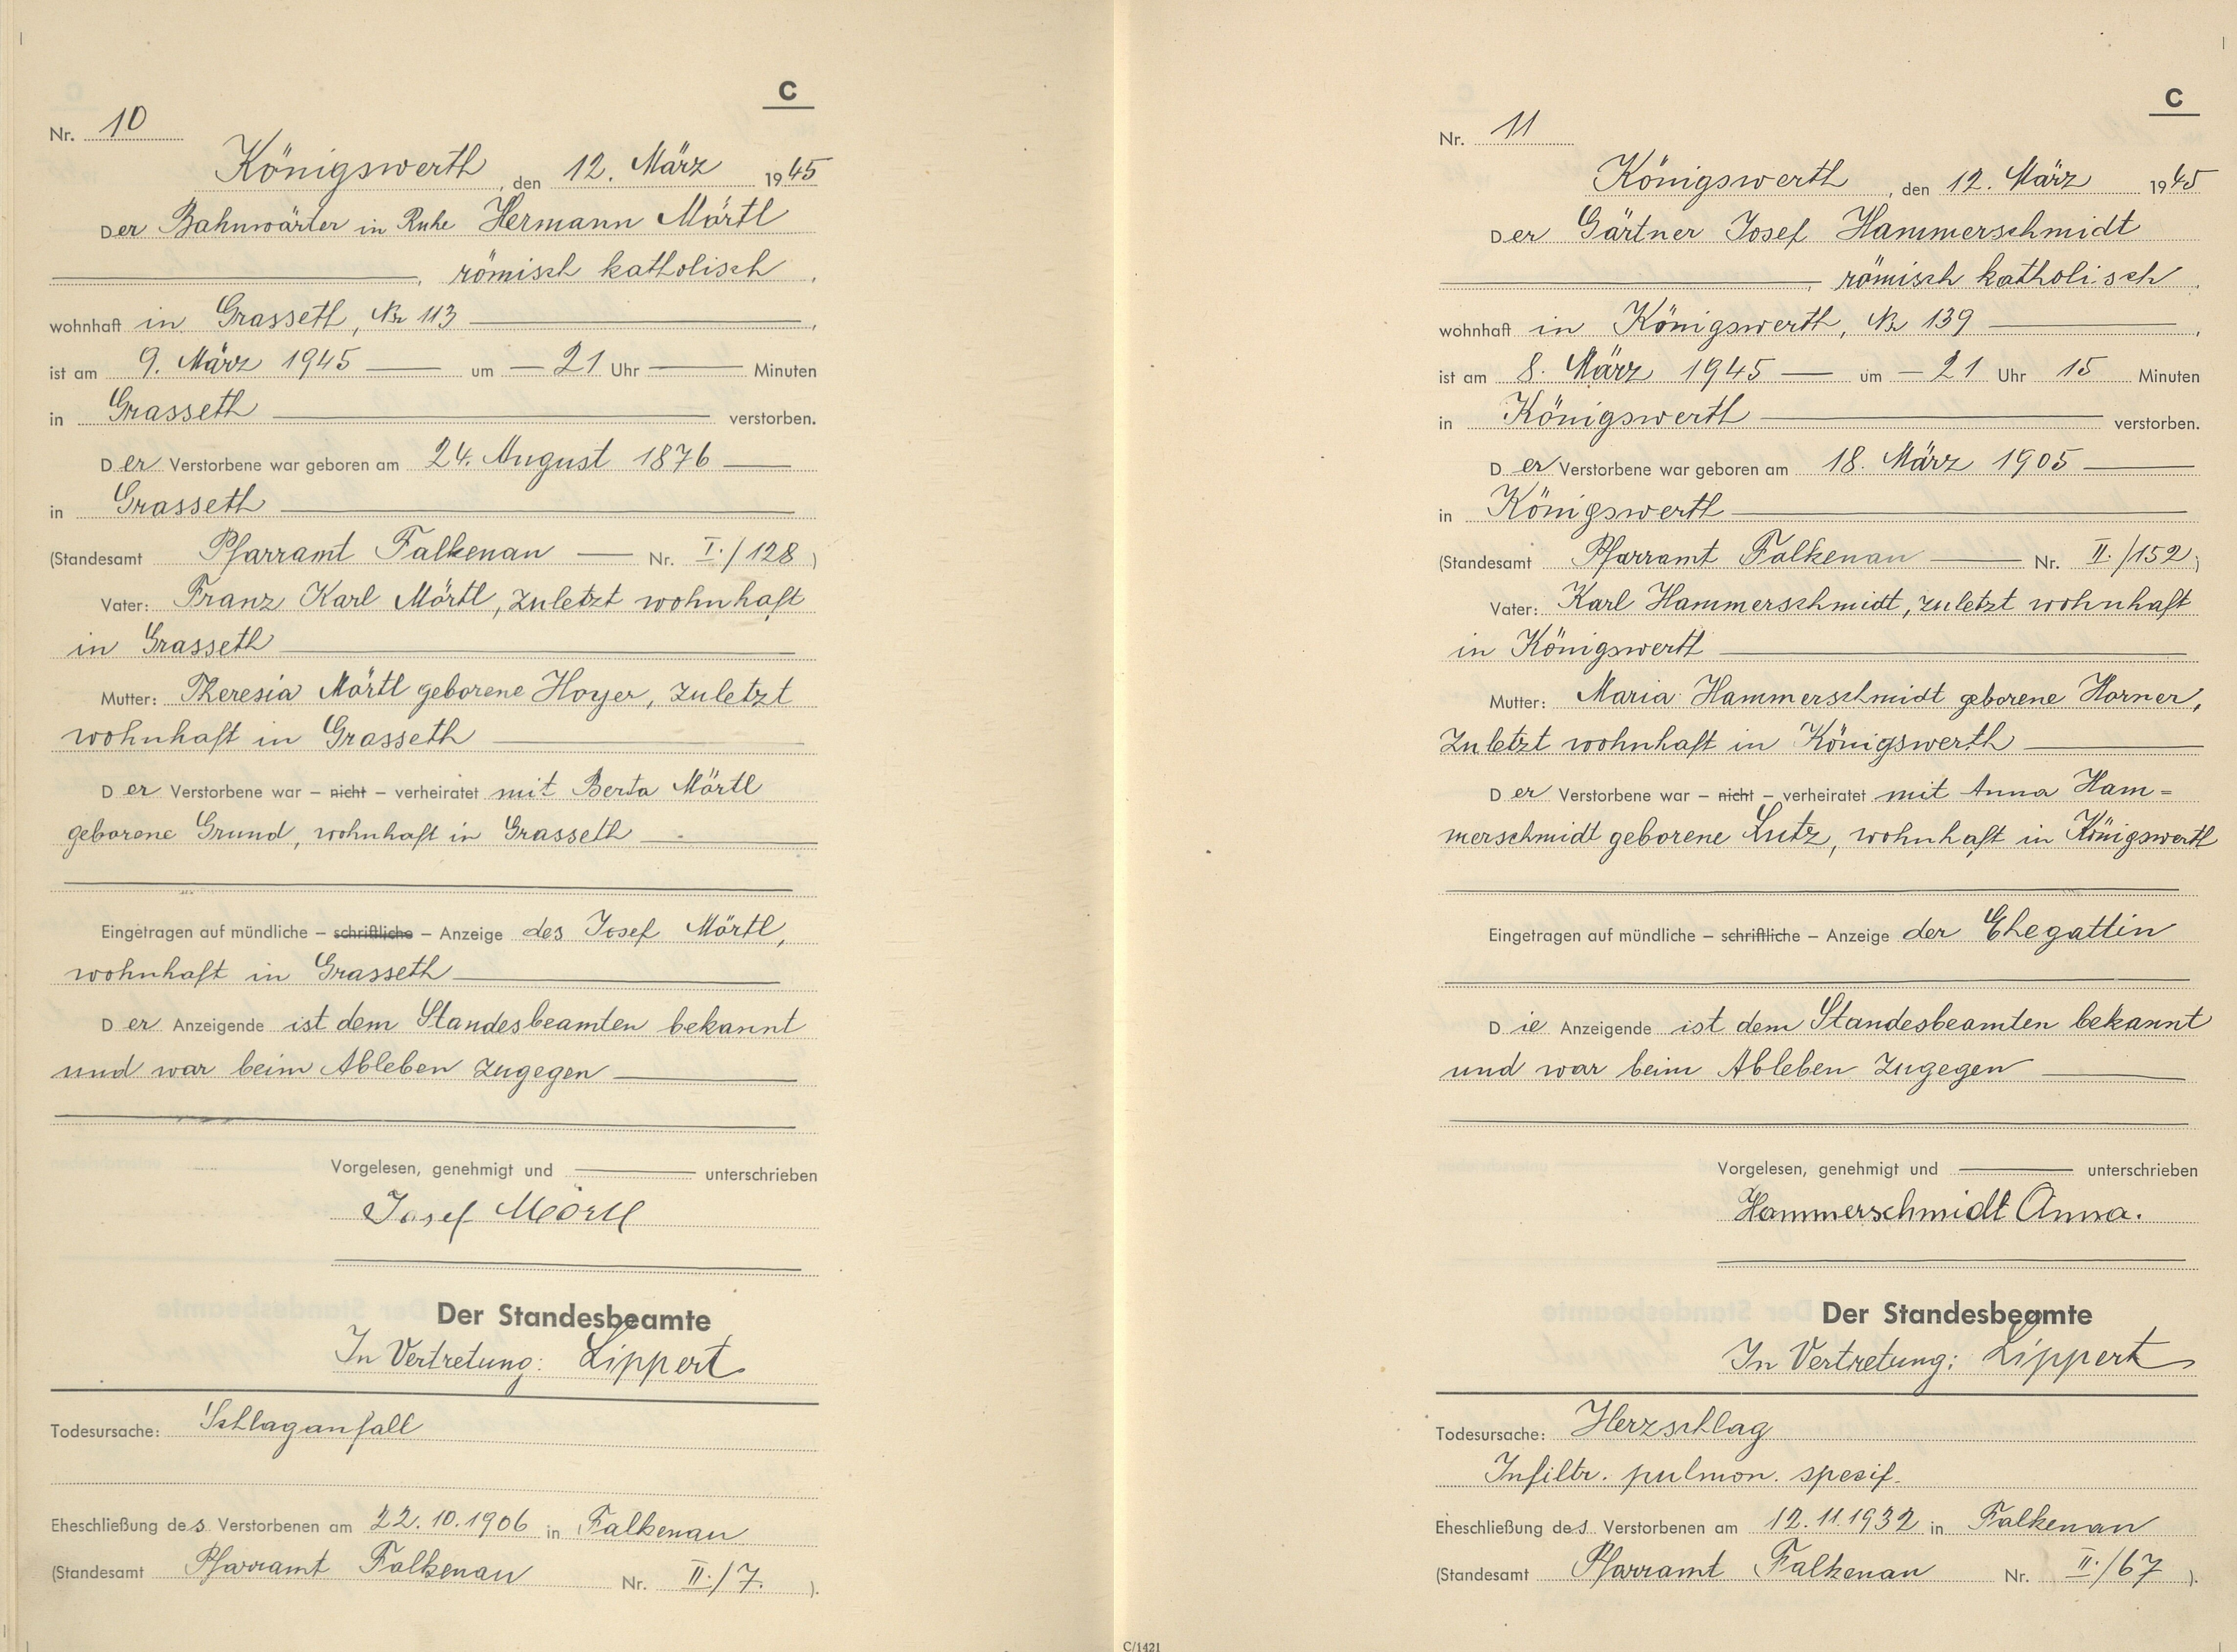 C
Nr. 10
Königswerth, den 12. März 1945
Der Bahnwärter in Ruhe Hermann Mörtl
, römisch katholisch,
wohnhaft in Grasseth, Nr 113,
ist am 9. März 1945 um 21 Uhr Minuten
in Grasseth verstorben.
Der Verstorbene war geboren am 24. August 1876
in Grasseth
(Standesamt Pfarramt Falkenau Nr. I./128)
Vater: Franz Karl Mörtl, zuletzt wohnhaft
in Grasseth
Mutter: Theresia Mörtl geborene Hoyer, zuletzt
wohnhaft in Grasseth
Der Verstorbene war – nicht – verheiratet mit Berta Mörtl
geborene Grund, wohnhaft in Grasseth
Eingetragen auf mündliche – schriftliche – Anzeige des Josef Mörtl,
wohnhaft in Grasseth
Der Anzeigende ist dem Standesbeamten bekannt
und war beim Ableben zugegen
Vorgelesen, genehmigt und unterschrieben
Josef Mörtl
Der Standesbeamte
In Vertretung: Lippert
Todesursache: Schlaganfall
Eheschließung des Verstorbenen am 22.10.1906 in Falkenau
(Standesamt Pfarramt Falkenau Nr. II./7.).
C
Nr. 11
Königswerth, den 12. März 1945
Der Gärtner Josef Hammerschmidt
, römisch katholisch,
wohnhaft in Königswerth, Nr 139,
ist am 8. März 1945 um 21 Uhr 15 Minuten
in Königswerth verstorben.
Der Verstorbene war geboren am 18. März 1905
in Königswerth
(Standesamt Pfarramt Falkenau Nr. II./152)
Vater: Karl Hammerschmidt, zuletzt wohnhaft
in Königswerth
Mutter: Maria Hammerschmidt geborene Horner,
zuletzt wohnhaft in Königswerth
Der Verstorbene war – nicht – verheiratet mit Anna Ham=
merschmidt geborene Lutz, wohnhaft in Königswerth
Eingetragen auf mündliche – schriftliche – Anzeige der Ehegattin
Die Anzeigende ist dem Standesbeamten bekannt
und war beim Ableben zugegen
Vorgelesen, genehmigt und unterschrieben
Hammerschmidt Anna.
Der Standesbeamte
In Vertretung: Lippert
Todesursache: Herzschlag
Infiltr. pulmon. spesif.
Eheschließung des Verstorbenen am 12.11.1932 in Falkenau
(Standesamt Pfarramt Falkenau Nr. II./67).
C/1421